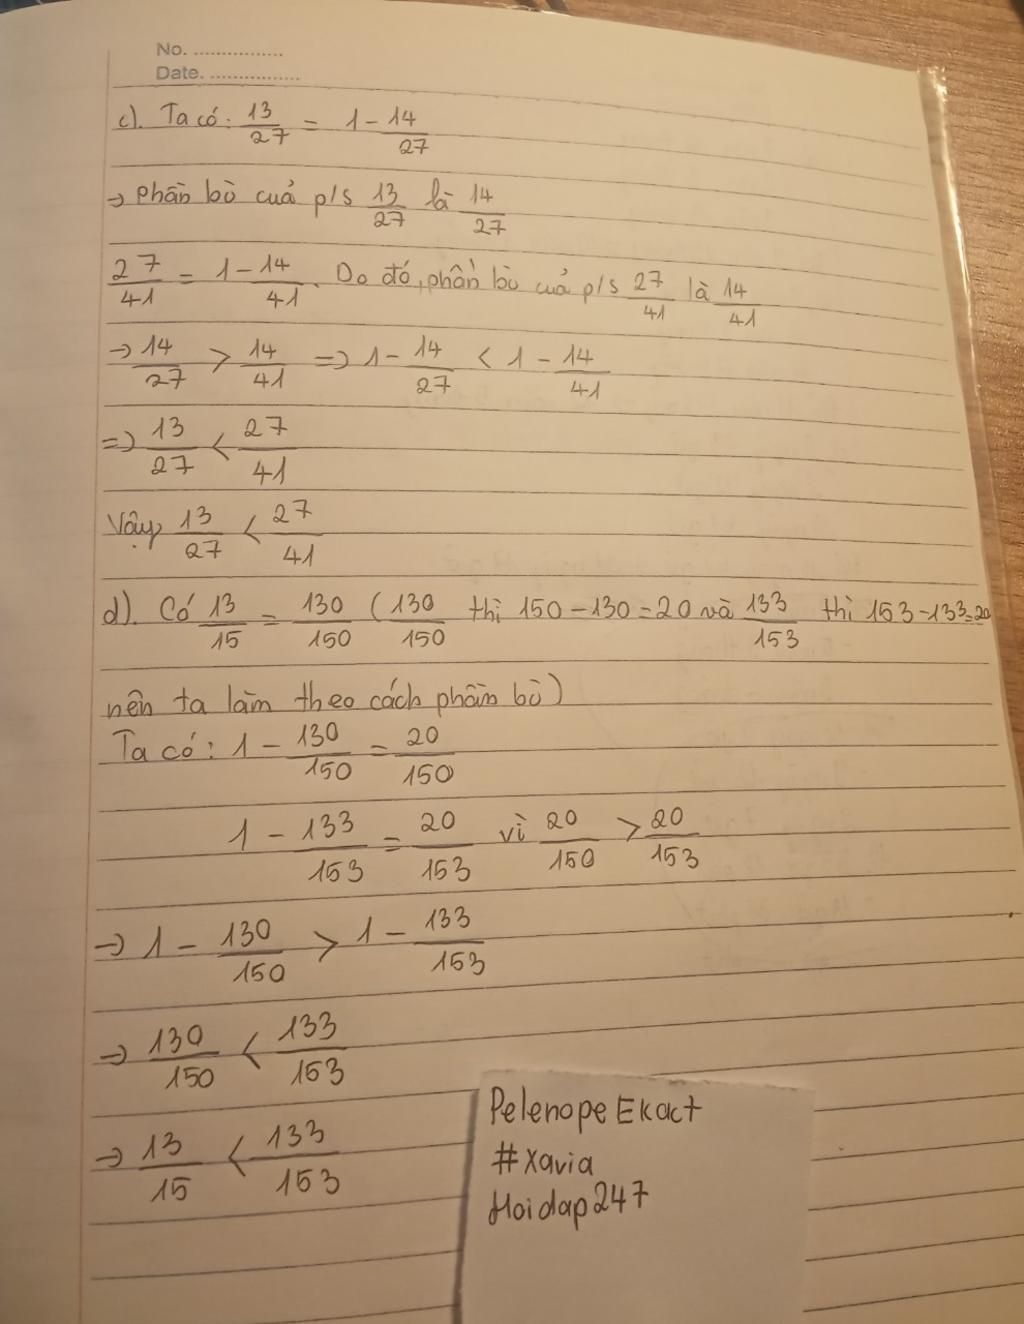 No. ................
Date. ................
c). Ta có: 13/27 = 1 - 14/27
→ phần bù của p/s 13/27 là 14/27
27/41 = 1 - 14/41. Do đó, phần bù của p/s 27/41 là 14/41
→ 14/27 > 14/41 => 1 - 14/27 < 1 - 14/41
=> 13/27 < 27/41
Vậy 13/27 < 27/41
d). Có 13/15 = 130/150 (130/150 thì 150 - 130 = 20 và 133/153 thì 153 - 133 = 20
nên ta làm theo cách phần bù)
Ta có: 1 - 130/150 = 20/150
1 - 133/153 = 20/153 vì 20/150 > 20/153
→ 1 - 130/150 > 1 - 133/153
→ 130/150 < 133/153
→ 13/15 < 133/153
Pelenope Ekact
#xavia
Hoidap247